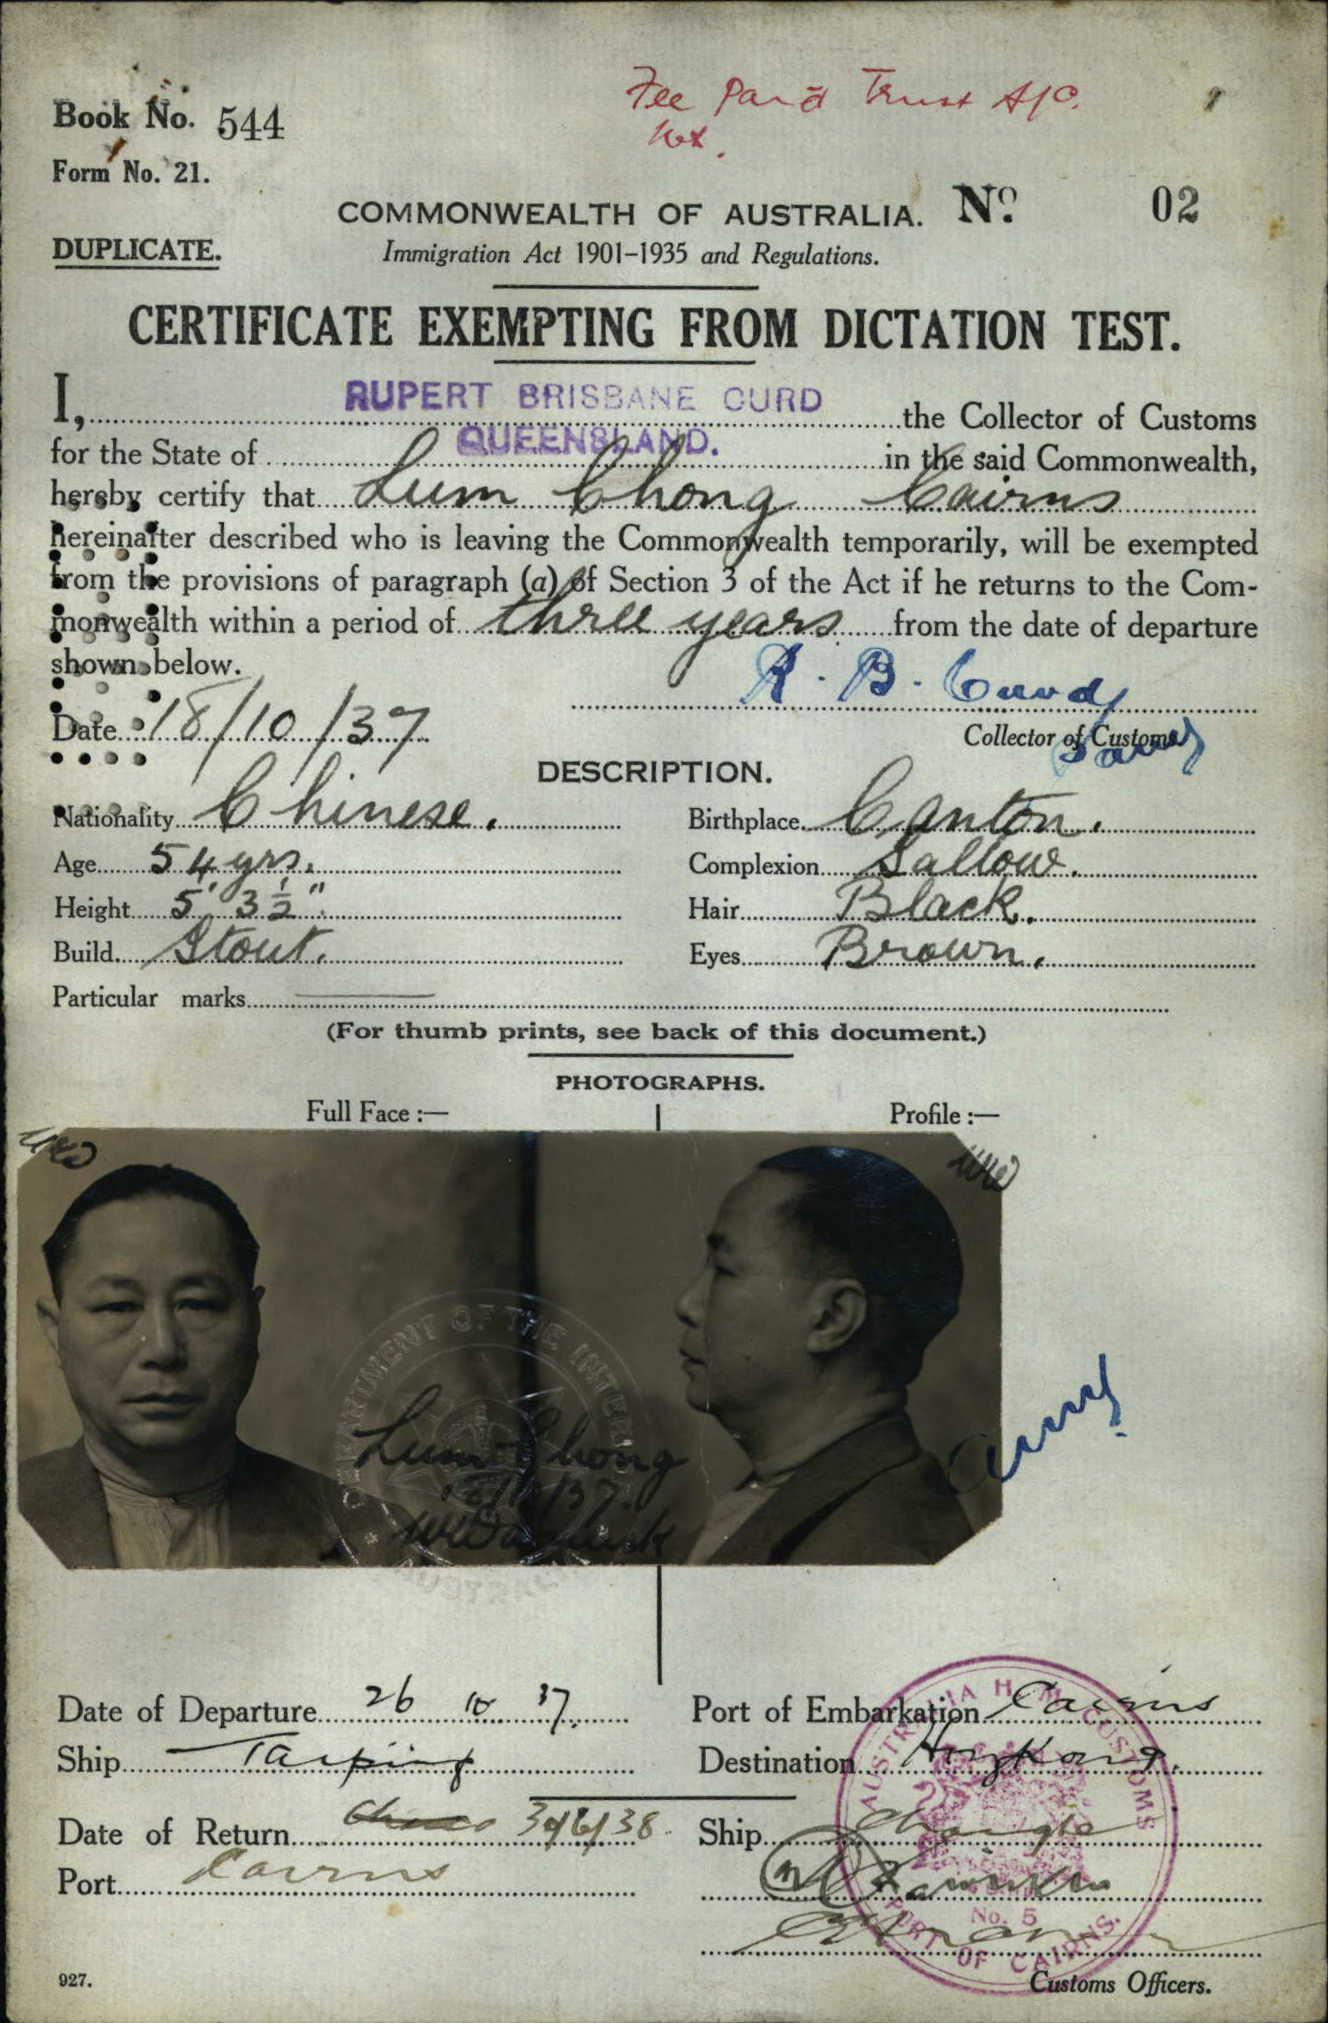 Fee Paid Trust A/C.
Book No. 544
Form No. 21.
COMMONWEALTH OF AUSTRALIA. No. 02
DUPLICATE.
Immigration Act 1901-1935 and Regulations.
CERTIFICATE EXEMPTING FROM DICTATION TEST.
I, RUPERT BRISBANE CURD the Collector of Customs
for the State of QUEENSLAND. in the said Commonwealth,
hereby certify that Lum Chong Cairns
hereinafter described who is leaving the Commonwealth temporarily, will be exempted
from the provisions of paragraph (a) of Section 3 of the Act if he returns to the Com-
monwealth within a period of three years from the date of departure
shown below.
R. B. Curd
Date 18/10/37
Collector of Customs
DESCRIPTION.
Nationality Chinese. Birthplace Canton.
Age 54 yrs. Complexion Sallow.
Height 5' 3½". Hair Black.
Build Stout. Eyes Brown.
Particular marks
(For thumb prints, see back of this document.)
PHOTOGRAPHS.
Full Face :— Profile :—
DEPARTMENT OF THE INTERIOR
Lum Chong
AUSTRALIA
Date of Departure 26 10 37. Port of Embarkation Cairns
Ship Taiping Destination Hong Kong.
Date of Return 30/6/38 Ship Changte
Port Cairns
AUSTRALIA H. M. CUSTOMS
No. 5
PORT OF CAIRNS.
927.
Customs Officers.